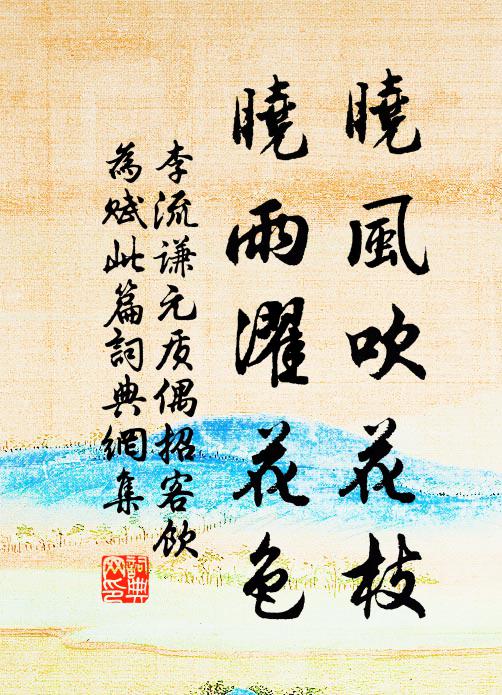 曉風吹花枝
曉雨濯花色
李流謙元质偶招客飲
為赋此篇詞典網集
詞典網印